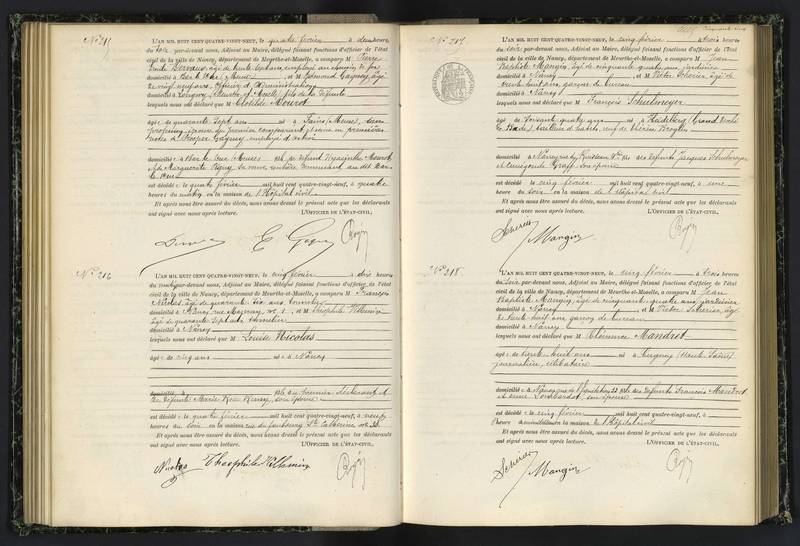 N° 215
L'AN MIL HUIT CENT QUATRE-VINGT-NEUF, le quatre février à deux heures
du soir par-devant nous, Adjoint au Maire, délégué faisant fonctions d'officier de l'état
civil de la ville de Nancy, département de Meurthe-et-Moselle, a comparu M Pierre
âgé de trente sept ans employé au chemin de fer
domicilié à Bar le Duc (Meuse) et M Edmond Gagny, âgé
de vingt neuf ans, officier d'administration
domicilié à Longwy (Meurthe et Moselle) fils de la défunte
lesquels nous ont déclaré que M Clotilde Mourot
âgée de quarante sept ans née à (Meuse), sans
profession, épouse du premier comparant, veuve en premières
noces de Prosper Gagny, employé
domiciliée à Bar le Duc (Meuse) fille de défunt Hyacinthe Mourot
et de Marguerite sa veuve rentière demeurant au dit Bar
le Duc
est décédée le quatre février mil huit cent quatre-vingt-neuf, à quatre
heures du matin en la maison de l'Hôpital civil
Et après nous être assuré du décès, nous avons dressé le présent acte que les déclarants
ont signé avec nous après lecture. L'OFFICIER DE L'ÉTAT-CIVIL,
E Gagny
N° 216
L'AN MIL HUIT CENT QUATRE-VINGT-NEUF, le cinq février à dix heures
du matin par-devant nous, Adjoint au Maire, délégué faisant fonctions d'officier de l'état
civil de la ville de Nancy, département de Meurthe-et-Moselle, a comparu M François
Nicolas âgé de quarante six ans tonnelier
domicilié à Nancy rue Mazagran, n° 1, et M Théophile Villemin
âgé de quarante sept ans
domicilié à Nancy
lesquels nous ont déclaré que M Louise Nicolas
âgée de cinq ans née à Nancy
domiciliée à fille du premier déclarant et
de défunte Marie Rose son épouse
est décédée le quatre février mil huit cent quatre-vingt-neuf, à neuf
heures du soir en la maison rue du faubourg Ste Catherine n° 38
Et après nous être assuré du décès, nous avons dressé le présent acte que les déclarants
ont signé avec nous après lecture. L'OFFICIER DE L'ÉTAT-CIVIL,
Nicolas Theophile Villemin
N° 217
L'AN MIL HUIT CENT QUATRE-VINGT-NEUF, le cinq février à trois heures
du soir par-devant nous, Adjoint au Maire, délégué faisant fonctions d'officier de l'état
civil de la ville de Nancy, département de Meurthe-et-Moselle, a comparu M Jean
Baptiste Mangin, âgé de cinquante quatre ans jardinier
domicilié à Nancy et M Victor Scherier, âgé de
trente huit ans, garçon de bureau
domicilié à Nancy
lesquels nous ont déclaré que M François Schulmeyer
âgé de soixante quatre ans né à Heidelberg (Grand Duché
de Bade) tailleur d'habits, veuf de Thérèse
domicilié à Nancy fils des défunts Jacques Schulmeyer
et Cunégonde Graff son épouse
est décédé le cinq février mil huit cent quatre-vingt-neuf, à une
heure du soir en la maison de l'Hôpital civil
Et après nous être assuré du décès, nous avons dressé le présent acte que les déclarants
ont signé avec nous après lecture. L'OFFICIER DE L'ÉTAT-CIVIL,
Scherier
Mangin
N° 218
L'AN MIL HUIT CENT QUATRE-VINGT-NEUF, le cinq février à trois heures
du soir par-devant nous, Adjoint au Maire, délégué faisant fonctions d'officier de l'état
civil de la ville de Nancy, département de Meurthe-et-Moselle, a comparu M Jean
Baptiste Mangin, âgé de cinquante quatre ans jardinier
domicilié à Nancy et M Victor Scherier, âgé
de trente huit ans, garçon de bureau
domicilié à Nancy
lesquels nous ont déclaré que M Clémence Mandrot
âgée de trente huit ans née à (Haute Saône)
journalière, célibataire
domiciliée à Nancy fille des défunts François Mandrot
et Anne son épouse
est décédée le cinq février mil huit cent quatre-vingt-neuf, à
heure en la maison de l'Hôpital civil
Et après nous être assuré du décès, nous avons dressé le présent acte que les déclarants
ont signé avec nous après lecture. L'OFFICIER DE L'ÉTAT-CIVIL,
Scherier
Mangin